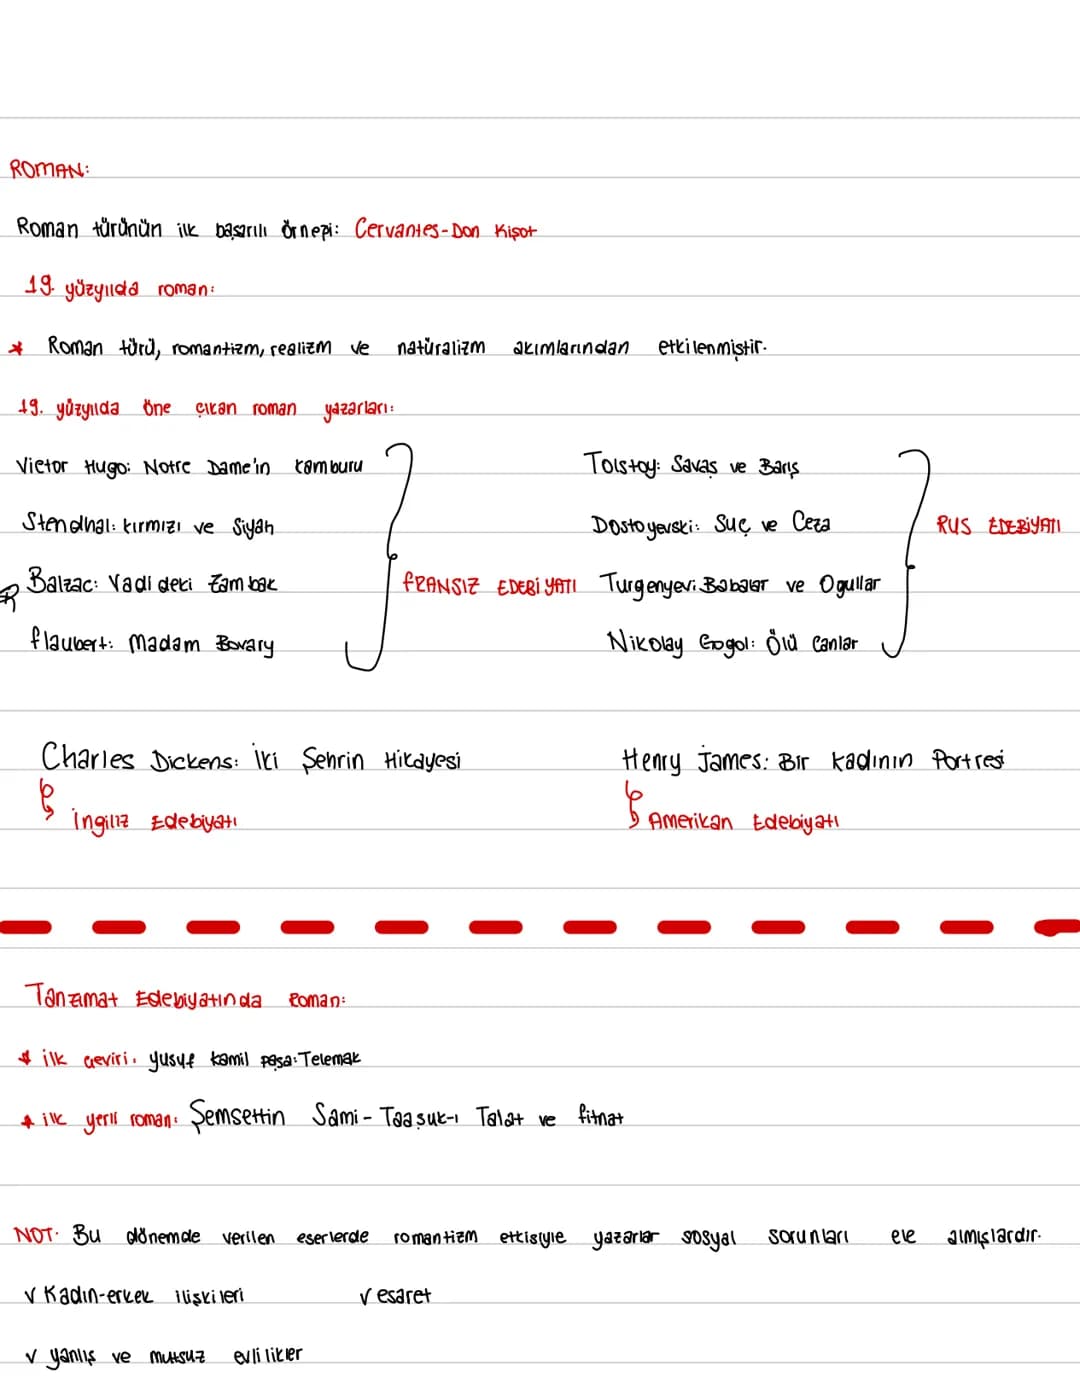 ROMAN:
Roman türünün ilk başarılı örneği: Cervantes-Don Kişot
19. yüzyılda roman:
* Roman türü, romantizm, realizm ve natüralizm akımlarından etkilenmiştir.
19. yüzyılda öne çıkan roman yazarları:
Victor Hugo: Notre Dame'in kamburu
Stendhal: kırmızı ve Siyah
Balzac: Vadideki Zambak
flaubert: Madam Bovary
fRANSIZ EDEBİYATI
Tolstoy: Savaş ve Barış
Dostoyevski: Suç ve Ceza
Turgenyev: Babalar ve Ogullar
Nikolay Gogol: Ölü Canlar
RUS EDEBİYATI
Charles Dickens: İki Şehrin Hikayesi
İngiliz Edebiyatı
Henry James: Bir Kadının Portresi
Amerikan Edebiyatı
Tanzimat Edebiyatında Roman:
* ilk çeviri: Yusuf kamil paşa: Telemak
* ilk yerli roman: Şemsettin Sami - Taaşuk-ı Talat ve fitnat
NOT: Bu dönemde verilen eserlerde romantizm etkisiyle yazarlar sosyal sorunları ele almışlardır.
√ Kadın-erkek ilişkileri √ esaret
√ yanlış ve mutsuz evlilikler